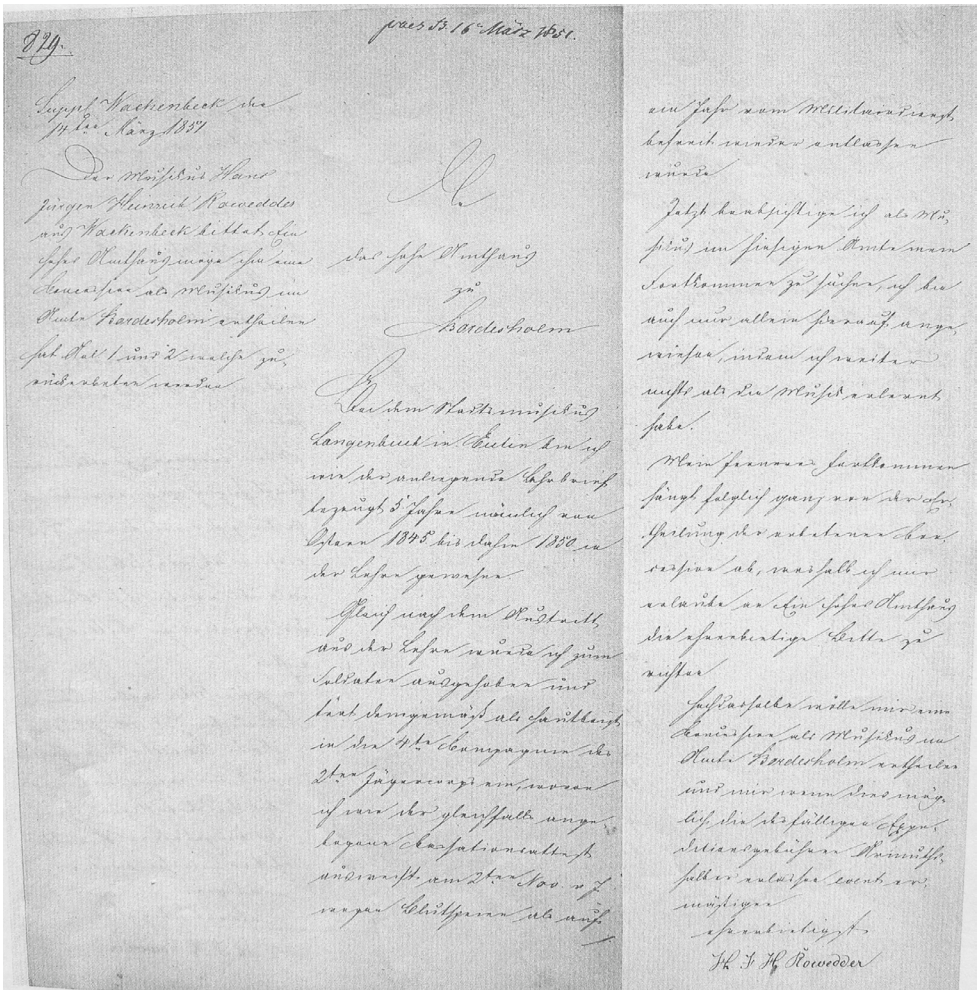 829.
praes d. 16ten März 1851.
Suppl Wattenbeck den
14ten März 1851
Der Musikus Hans
Jürgen Heinrich Rowedder
aus Wattenbeck bittet Ein
hohes Amthaus möge ihm eine
Concession als Musikus im
Amte Bordesholm ertheilen
hat Anl 1 und 2 welche zu-
rückerbeten werden
An
das hohe Amthaus
zu
Bordesholm
Bei dem Stadtmusikus
Langenbuch in Eutin bin ich
wie der anliegende Lehrbrief
bezeugt 5 Jahre nämlich von
Ostern 1845 bis dahin 1850 in
der Lehre gewesen.
Gleich nach dem Austritt
aus der Lehre wurde ich zum
Soldaten ausgehoben und
trat demgemäß als Hautboist
in die 4te Compagnie des
2ten Jägercorps ein, wovon
ich wie der gleichfalls ange-
bogene Cassationsattest
ausweist, am 2ten Nov. v J
wegen Blutspeien als auf
ein Jahr vom Militairdienst
befreit wieder entlassen
wurde
Jetzt beabsichtige ich als Mu-
sikus im hiesigen Amte mein
Fortkommen zu suchen, ich bin
auch nur allein hierauf ange-
wiesen, indem ich weiter
nichts als die Musik erlernt
habe.
Mein ferneres Fortkommen
hängt folglich ganz von der Er-
theilung der erbetenen Con-
cession ab, weshalb ich mir
erlaube an Ein hohes Amthaus
die ehrerbietige Bitte zu
richten
Hochdasselbe wolle mir eine
Concession als Musikus im
Amte Bordesholm ertheilen
und mir wenn dies mög-
lich, die desfälligen Expe-
ditionsgebühren Armuths-
halber erlassen event. er-
mäßigen
ehrerbietigst
H J H Rowedder